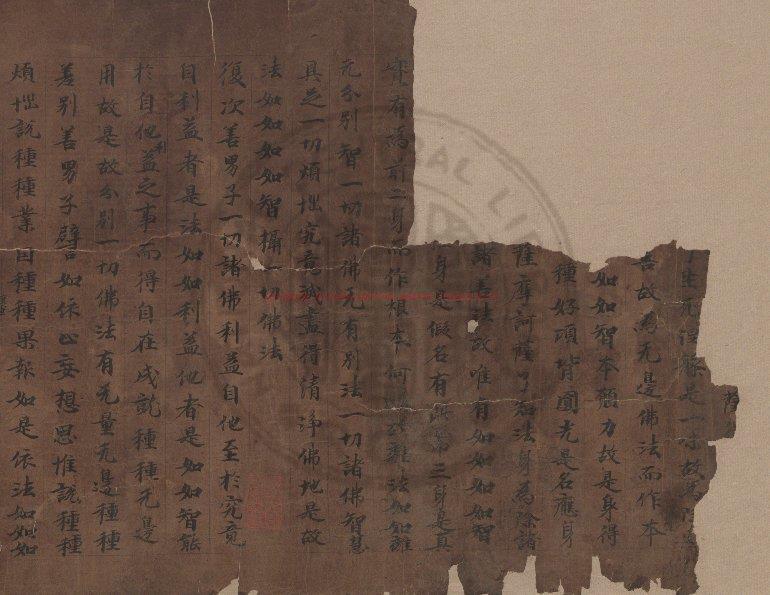 了生死涅槃是一味故為
喜故為无邊佛法而作本
如如智本願力故是身得
種好項背圓光是名應身
薩摩訶薩了知法身為除諸
諸善法故唯有如如如如智
身是假名有此第三身是真
實有為前二身而作根本何以故離法如如離
无分別智一切諸佛无有別法一切諸佛智慧
具足一切煩惱究竟滅盡得清淨佛地是故
法如如如如智攝一切佛法
復次善男子一切諸佛利益自他至於究竟
自利益者是法如如利益他者是如如智能
於自他利益之事而得自在成就種種无邊
用故是故分別一切佛法有无量无邊種種
善別善男子譬如依止妄想思惟說種種
煩惱說種種業因種種果報如是依法如如如